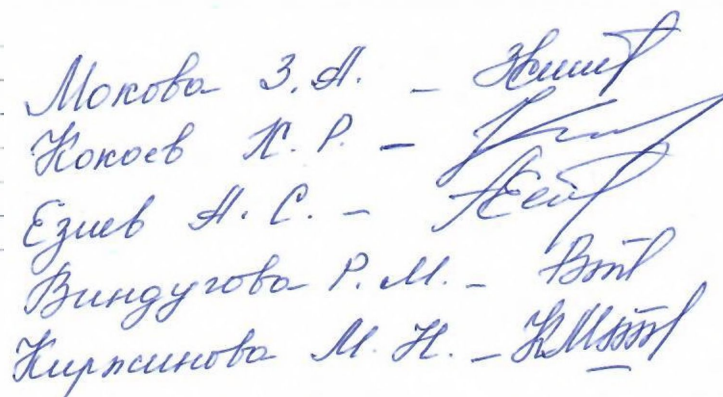 Мокова З.А. –
Кокоев К.Р. –
Езиев А.С. –
Виндугова Р.М. –
Киржинова М.Н. –